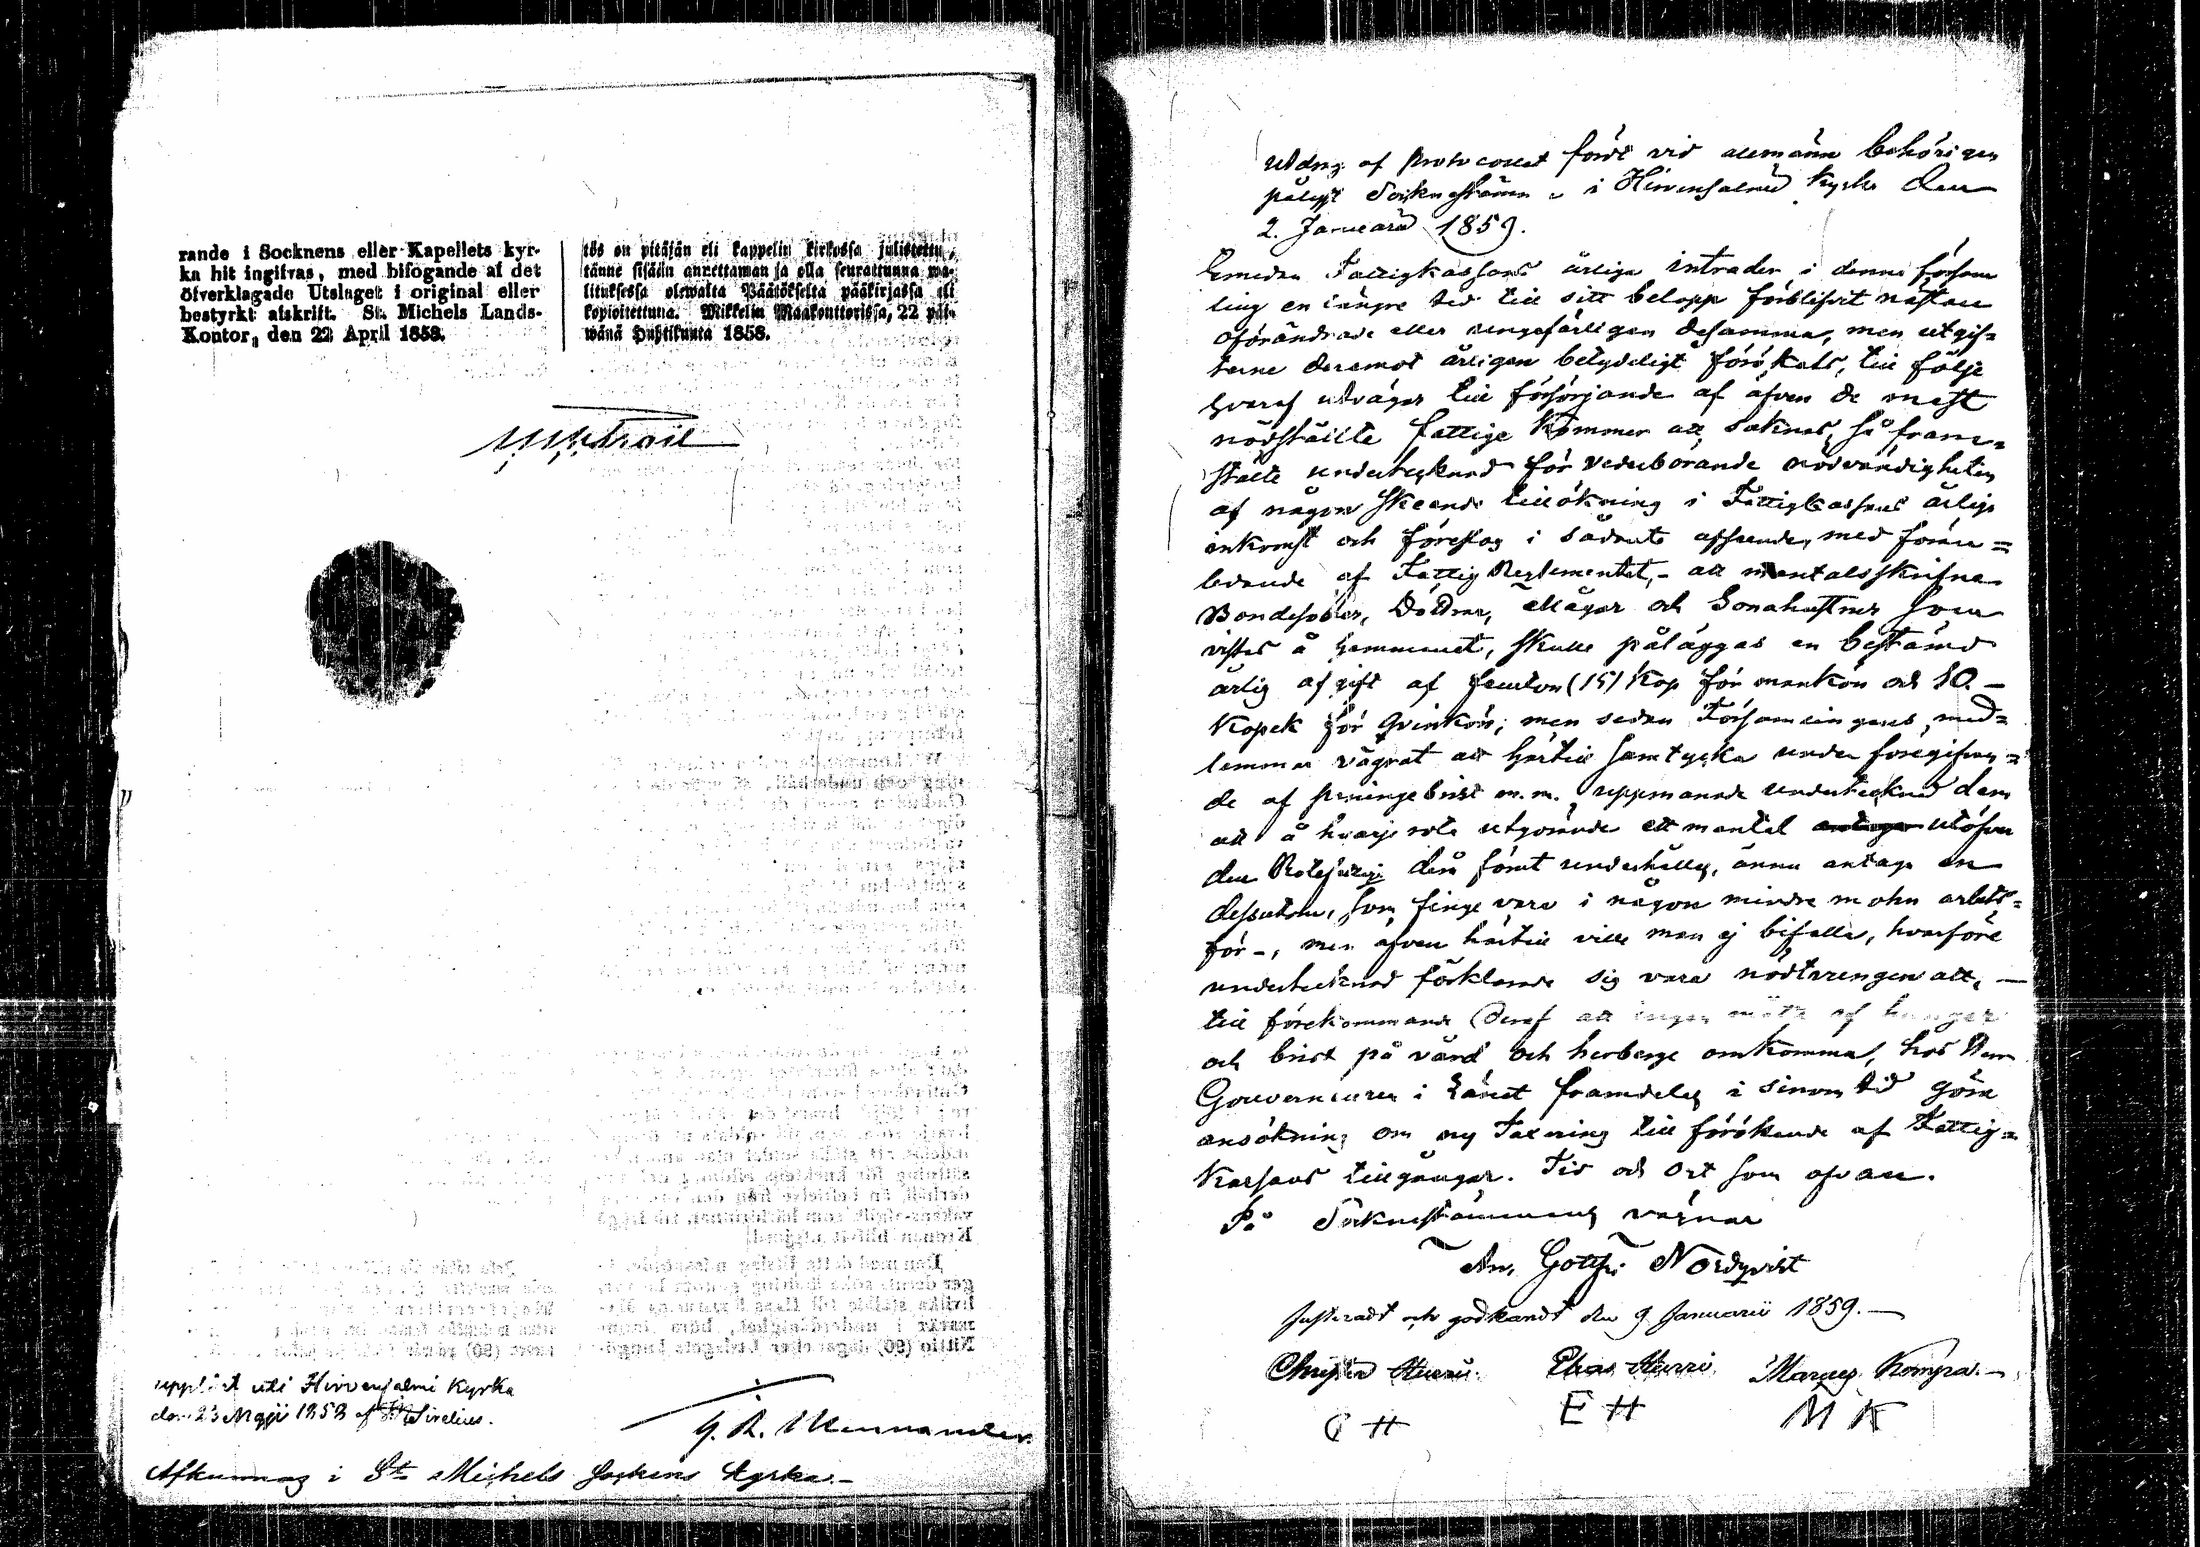 rande i Socknens eller Kapellets kyr-
ka hit ingifvas, med bifogande af det
öfverklagade Utslaget i original eller
bestyrkt afskrift. St. Michels Lands-
Kontor, den 22 April 1858.
tös on pitäjän eli kappelin kirkossa julistettu,
tänne sisään annettaman ja olla seurattunna wa-
lituksessa olewalta Päätökseltä pääkirjassa eli
kopioitettuna. Mikkelin Maakonttorissa, 22 päi-
wänä Huhtikuuta 1858.
uppläst uti Hirvensalmi Kyrka
den 23 Maji 1858 af Sirelius.
Afkunnas i St Michels Sockens Kyrka.-
Utdrag af Protocollet fördt vid allmänn behörigen
pålyst Sockenstämma i Hirvensalmi Kyrka den
2. Januarii 1859.
Emedan Fattigkassans årliga intrader i denna försam
ling en längre tid till sitt belopp förblifvit nästan
oförändrade eller ungefärligen desamma, men utgif=
terne deremot årligen betydeligt förökats, till följe
hvaraf utvägar till försörjande af äfven de mest
nödställte fattige kommer att saknas, så fram=
stälte undertecknad för vederbörande nödvändigheten
af någon skeende tillökning i Fattigkassans årliga
inkomst och föreslog i sådant afseende, med föran=
ledande af Fattig Reglementet, - att mantalsskrifne
Bondesöner, Döttrar, Mågar och Sonahustrur som
vistas å hemmanet, skulle påläggas en bestämd
årlig afgift af femton (15) Kop för mankön och 10.-
Kopek för Qvinkön; men sedan Församlingens med=
lemmar vägrat att härtill samtycka under föregifvan=
de af penningebrist m.m., uppmanade undertecknad dem
att å hvarje rote utgörande ett mantal utöfver
den Rotefattig den förut underhåller, ännu antaga en
dessutom, som finge vara i någon mindre mohn arbets=
för -, men äfven härtill ville man ej bifalla, hvarföre
undertecknad förklarade sig vara nödtvungen att, -
till förekommande deraf att ingen måtte af hunger
och brist på vård och herberge omkomma, hos Herr
Gouverneuren i Länet framdeles i sinom tid göra
ansökning om ny Taxering till förökande af Fattig=
Kassans tillgångar. Tid och Ort som ofvan.
På Sockenstämmans vägnar
And. Gottfr. Nordqvist
Justeradt och godkändt den 9 Januarii 1859.-
Christer Elias Marcus
C H E H M K